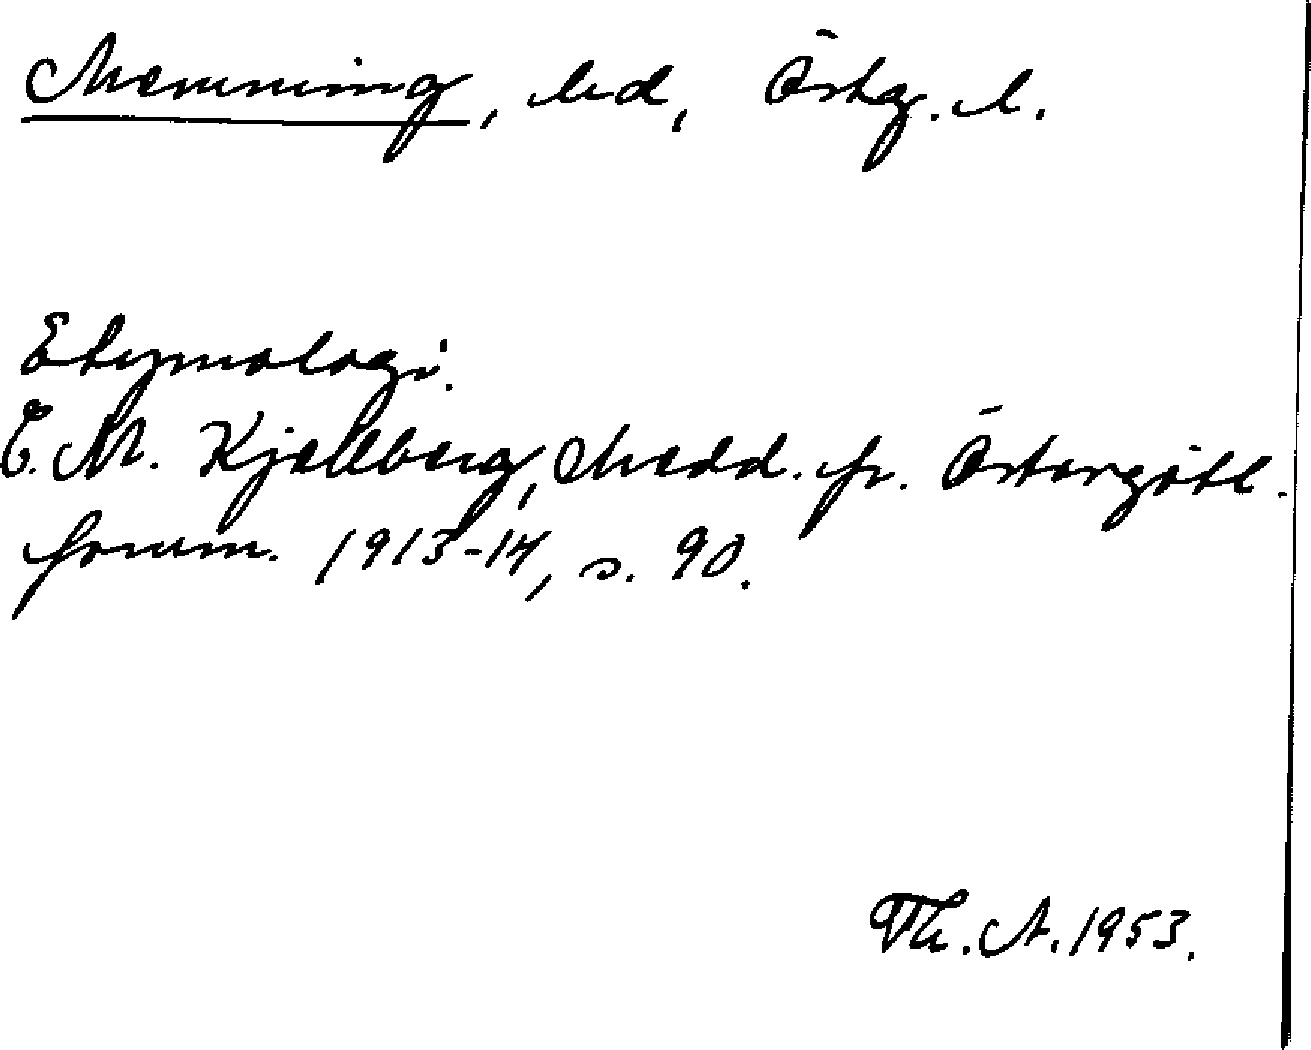 Memming, hd, Östg. l.
Etymologi.
C. M. Kjellberg, Medd. fr. Östergötl.
fornm. 1913-14, s. 90.
Th. A. 1953.